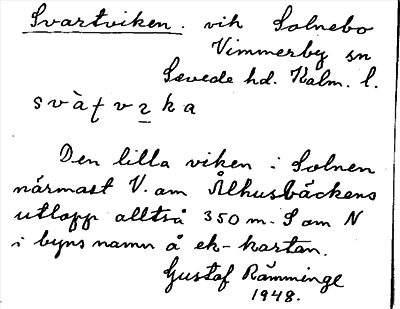 Svartviken. vik Solnebo
Vimmerby sn
Sevede hd. Kalm. l.
svàƭvꝛka
Den lilla viken i Solnen
närmast V. om Ålhusbäckens
utlopp alltså 350 m. S om N
i byns namn å ek-kartan.
Gustaf Rämminge
1948.